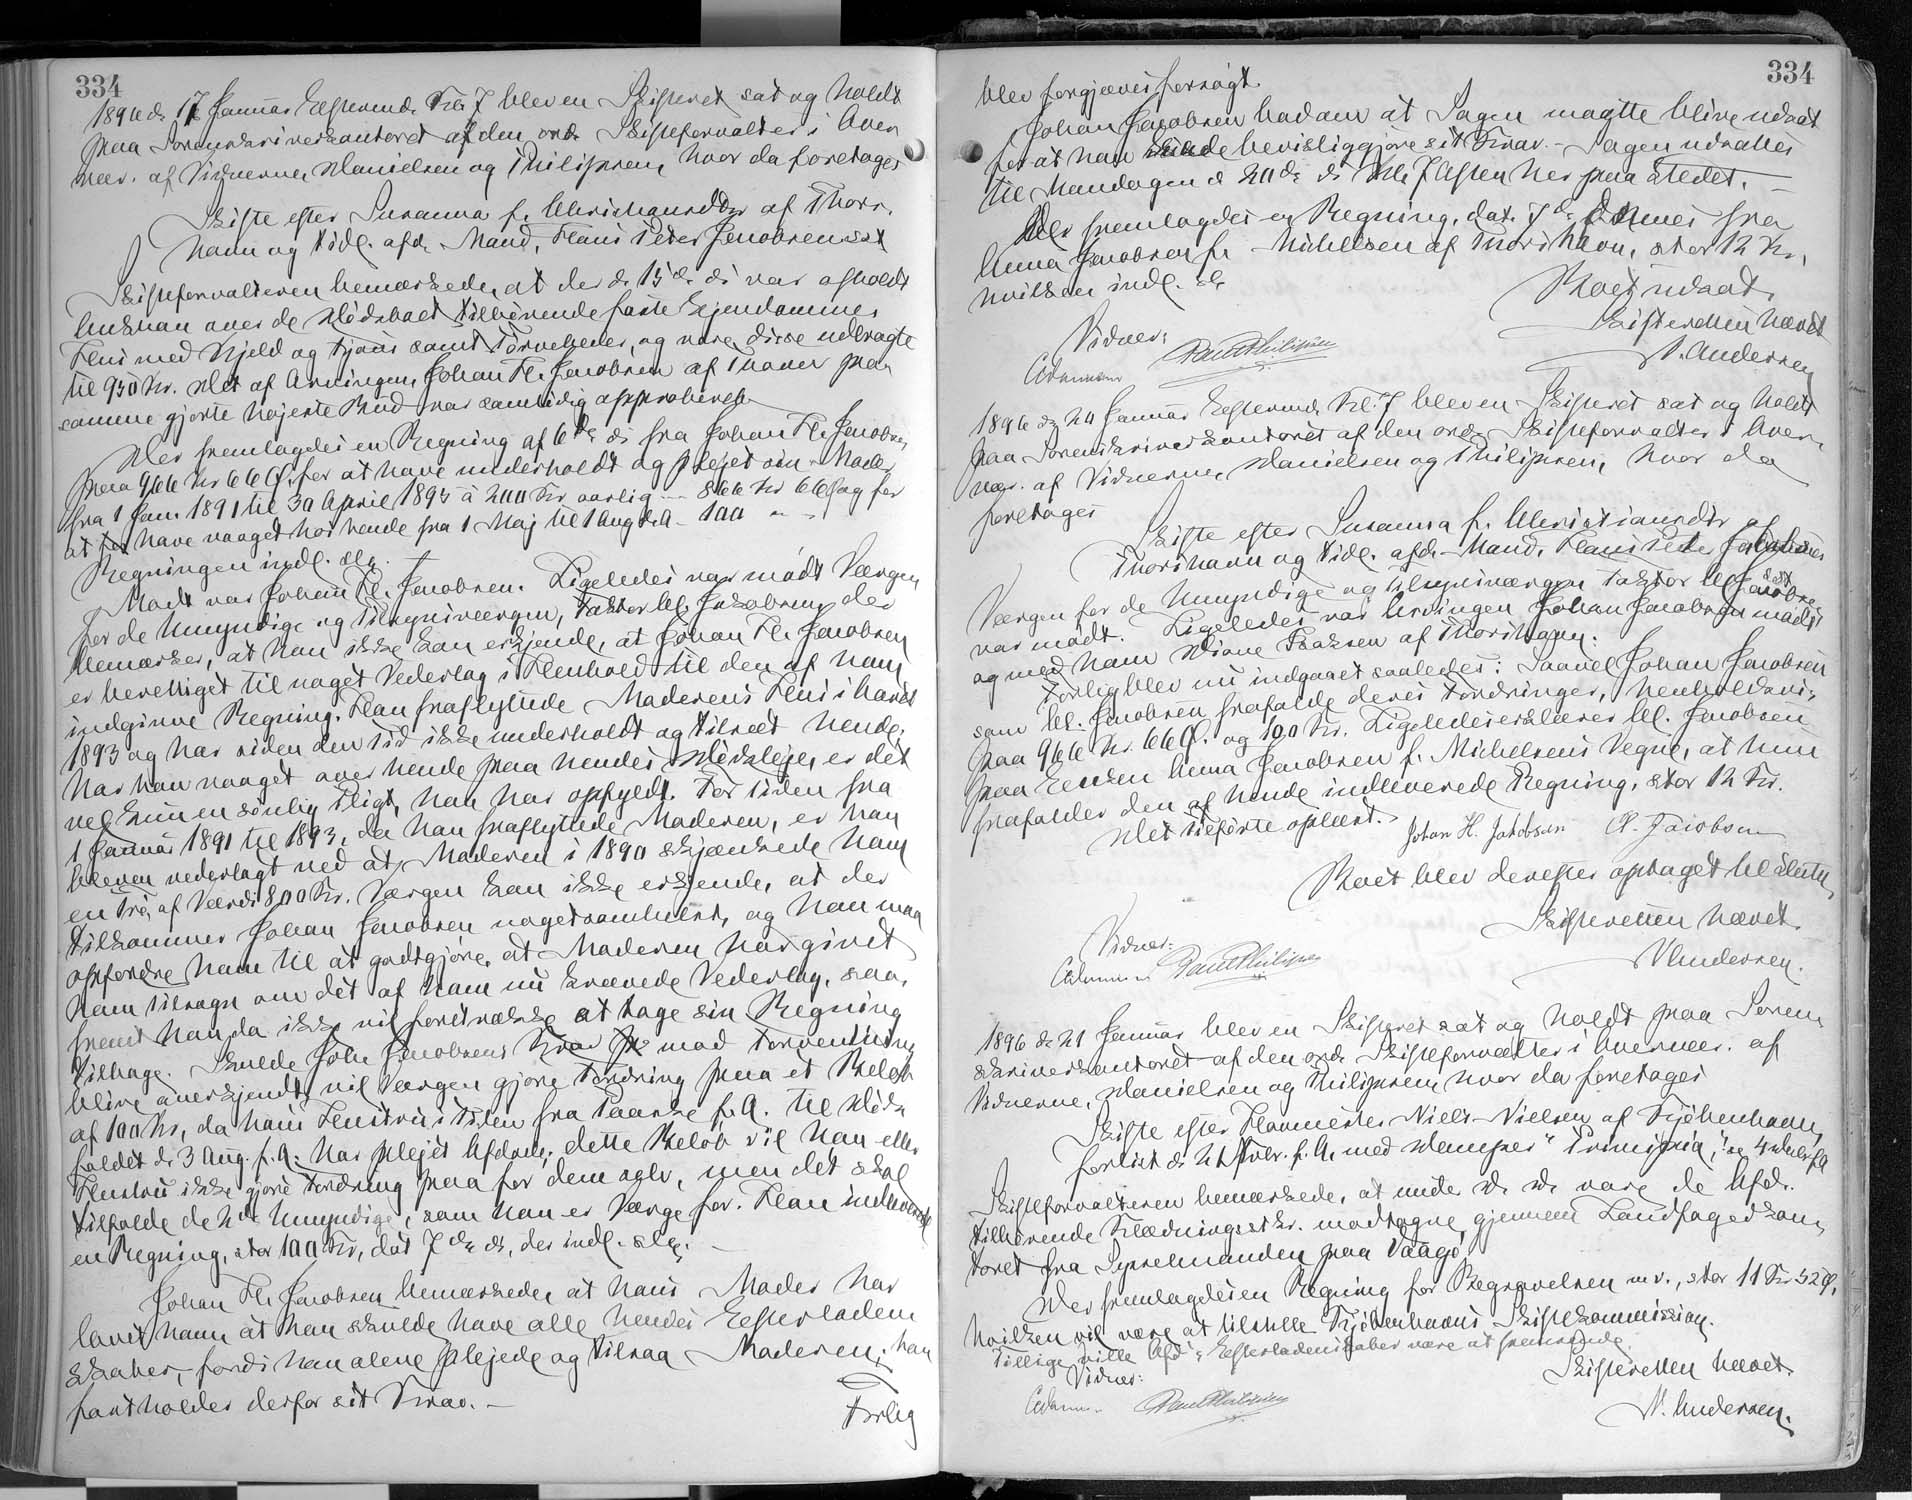 334
1896 d. 17 Januar Eftermd. Kl. 7 blev en Skifteret sat og holdt
paa Sorenskriverkontoret af den ord. Skifteforvalter i Over
vær. af Vidnerne, Danielsen og Philipsen, hvor da foretages
Skifte efter Susanna f. Christiansdtr af Thors.
havn og tidl. afd. Mand, Hans Peter Jacobsen sst
Skifteforvalteren bemærkede, at der d. 15de ds var afholdt
Auktion over de Dødsboet tilhørende faste Ejendomme
Hus med Kjeld og Hjaus samt Tørveheder, og vare disse udbragte
til 950 Kr. Det af Arvingen, Johan H. Jacobsen af Thavn paa
samme gjorte højeste Bud var samtidig approberet.
Der fremlagdes en Regning af 6te ds fra Johan H. Jacobsen
paa 966 Kr 66 Ø. for at have underholdt og plejet sin Moder
fra 1 Jan. 1891 til 30 April 1895 à 200 Kr aarlig - 866 Kr 66 Ø og for
at have vaaget hos hende fra 1 Maj til 1 Aug s. A. 100 " - "
Regningen indl. slg.
Mødt var Johan H. Jacobsen. Ligeledes var mødt Værgen
for de Umyndige og Tilsynsværgen, Faktor Cl. Jacobsen, der
bemærker, at han ikke kan erkjende, at Johan H. Jacobsen
er berettiget til noget Vederlag i Henhold til den af ham
indgivne Regning. Han fraflyttede Moderens Hus i Høst
1893 og har siden den Tid ikke underholdt og tilseet hende;
har han vaaget over hende paa hendes Dødsleje, er det
vel kun en sønlig Pligt, han har opfyldt. For Tiden fra
1 Januar 1891 til 1893, da han fraflyttede Moderen, er han
bleven vederlagt ved at Moderen i 1890 skjænkede ham
en Trø, af Værdi 800 Kr. Værgen kan ikke erkjende, at der
tilkommer Johan Jacobsen nogetsomhelst, og han maa
opfordre ham til at godtgjøre, at Moderen har givet
ham Tilsagn om det af ham nu krævede Vederlag, saa,
fremt han da ikke vil foretrække at tage sin Regning
tilbage. Skulde Joh. Jacobsens Krav mod Forventning
blive anerkjendt, vil Værgen gjøre Fordring paa et Beløb
af 100 Kr, da hans Hustru i Tiden fra Paaske f. A. til Døds
faldet d. 3 Aug. f. A. har plejet Afdøde; dette Beløb vil han eller
Hustru ikke gjøre Fordring paa for dem selv, men det skal
tilfalde de 2de Umyndige, som han er Værge for. Han indleverede
en Regning, stor 100 Kr, dat 7de ds, der indl. slg.
Johan H. Jacobsen bemærkede, at hans Moder har
lovet ham at han skulde have alle hendes Efterladen
skaber, fordi han alene plejede og tilsaa Moderen; han
fastholder derfor sit Krav. -
Forlig
334
blev forgjæves forsøgt.
Johan Jacobsen bad om at Sagen maatte blive udsat
for at han kunde bevisliggjøre sit Krav. - Sagen udsattes
til Mandagen d 20de ds Kl. 7 Aften her paa Stedet. -
Der fremlagdes en Regning, dat. 7de dennes fra
Anna Jacobsen f. Michelsen af Thorshavn, stor 12 Kr,
hvilken indl. slg
Boet udsat.
Skifteretten hævet
Vidner:
N. Andersen
Poul Philipsen
1896 d. 20 Januar Eftermd. Kl. 7 blev en Skifteret sat og holdt
paa Sorenskriverkontoret af den ord. Skifteforvalter i Over-
vær. af Vidnerne, Danielsen og Philipsen, hvor da
foretages
Skifte efter Susanna f. Christiansdtr af
Thorshavn og tidl. afd. Mand, Hans Peter Jacobsen
sst
Værgen for de Umyndige og Tilsynsværgen Faktor Cl. Jacobsen
var mødt. Ligeledes var Arvingen Johan Jacobsen mødt
og med ham Disne Isaksen af Thorshavn.
Forlig blev nu indgaaet saaledes: Saavel Johan Jacobsen
som Cl. Jacobsen frafalde deres Fordringer, henholdsvis
paa 966 Kr. 66 Ø. og 100 Kr. Ligeledes erklærer Cl. Jacobsen
paa Enken Anna Jacobsen f. Michelsens Vegne, at hun
frafalder den af hende indleverede Regning, stor 12 Kr.
Det Tilførte oplæst. Johan H. Jakobsen Cl. Jacobsen
Boet blev derefter optaget til Slutn.
Skifteretten hævet.
Vidner:
N Andersen.
Poul Philipsen
1896 d. 21 Januar blev en Skifteret sat og holdt paa Soren
skriverkontoret af den ord. Skifteforvalter i Overvær. af
Vidnerne, Danielsen og Philipsen, hvor da foretages
Skifte efter Hovmester Niels Nielsen af Kjøbenhavn,
forlist d. 21 f. A. med Damper "Principia",
Skifteforvalteren bemærkede, at under D. D. vare de Afd.
tilhørende Klædningsstkr. modtagne gjennem Landfogedkon
toret fra Sysselmanden paa Vaagø
Der fremlagdes en Regning for Begravelsen m.v., stor 11 Kr 52 Ø,
hvilken vil være at tilstille Kjøbenhavns Skiftekommission.
Tillige ville Afd's Efterladenskaber være at fremsende.
Skifteretten hævet.
Vidner:
N. Andersen.
Poul Philipsen